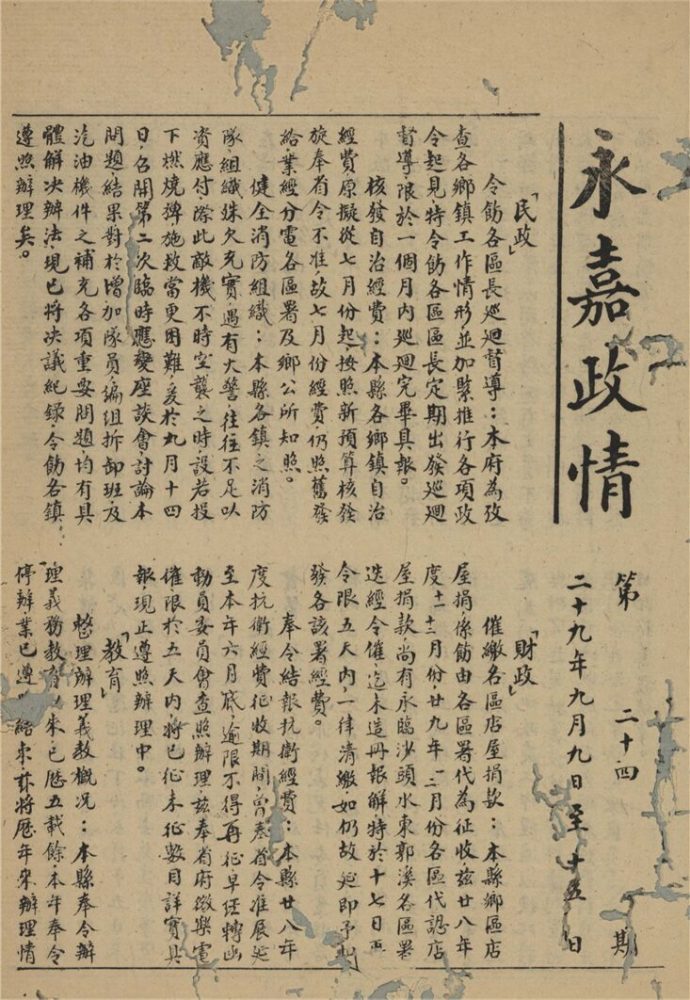 永嘉政情
第二十四期
二十九年九月九日至十五日
「民政」
令飭各區長巡迴督導：本府為攷
查各鄉鎮工作情形並加緊推行各項政
令起見特令飭各區區長定期出發巡迴
督導限於一個月內巡迴完畢具報。
核發自治經費：本縣各鄉鎮自治
經費原擬從七月份起按照新預算核發
旋奉省令不准，故七月份經費仍照舊發
給業經分電各區署及鄉公所知照。
健全消防組織：本縣各鎮之消防
隊組織殊欠充實，遇有火警往往不足以
資應付際此敵機不時空襲之時設若投
下燃燒彈施救當更困難，爰於九月十四
日召開第二次臨時應變座談會討論本
問題結果對於增加隊員，編組拆卸班及
汽油機件之補充各項重要問題均有具
體解決辦法現已將決議紀錄令飭各鎮
遵照辦理矣。
「財政」
催繳各區店屋捐款：本縣鄉區店
屋捐係飭由各區署代為征收茲廿八年
度十一十二月份，廿九年一二月份各區代認店
屋捐款尚有永臨沙頭水東郭溪各區署
迭經令催，迄未造冊報解特於十七日再
令限五天內一律清繳如仍故延即予
發各該署經費。
奉令結報抗衛經費：本縣廿八年
度抗衛經費征收期間，曾奉省令准展延
至本年六月底逾限不得再征早經轉函
動員委員會查照辦理茲奉省府微樂電
催限於五天內將已征未征數目詳實具
報現正遵照辦理中。
「教育」
整理辦理義教概況：本縣奉令辦
理義務教育以來已歷五載餘，本年奉令
停辦業已遵結束，茲將歷年來辦理情